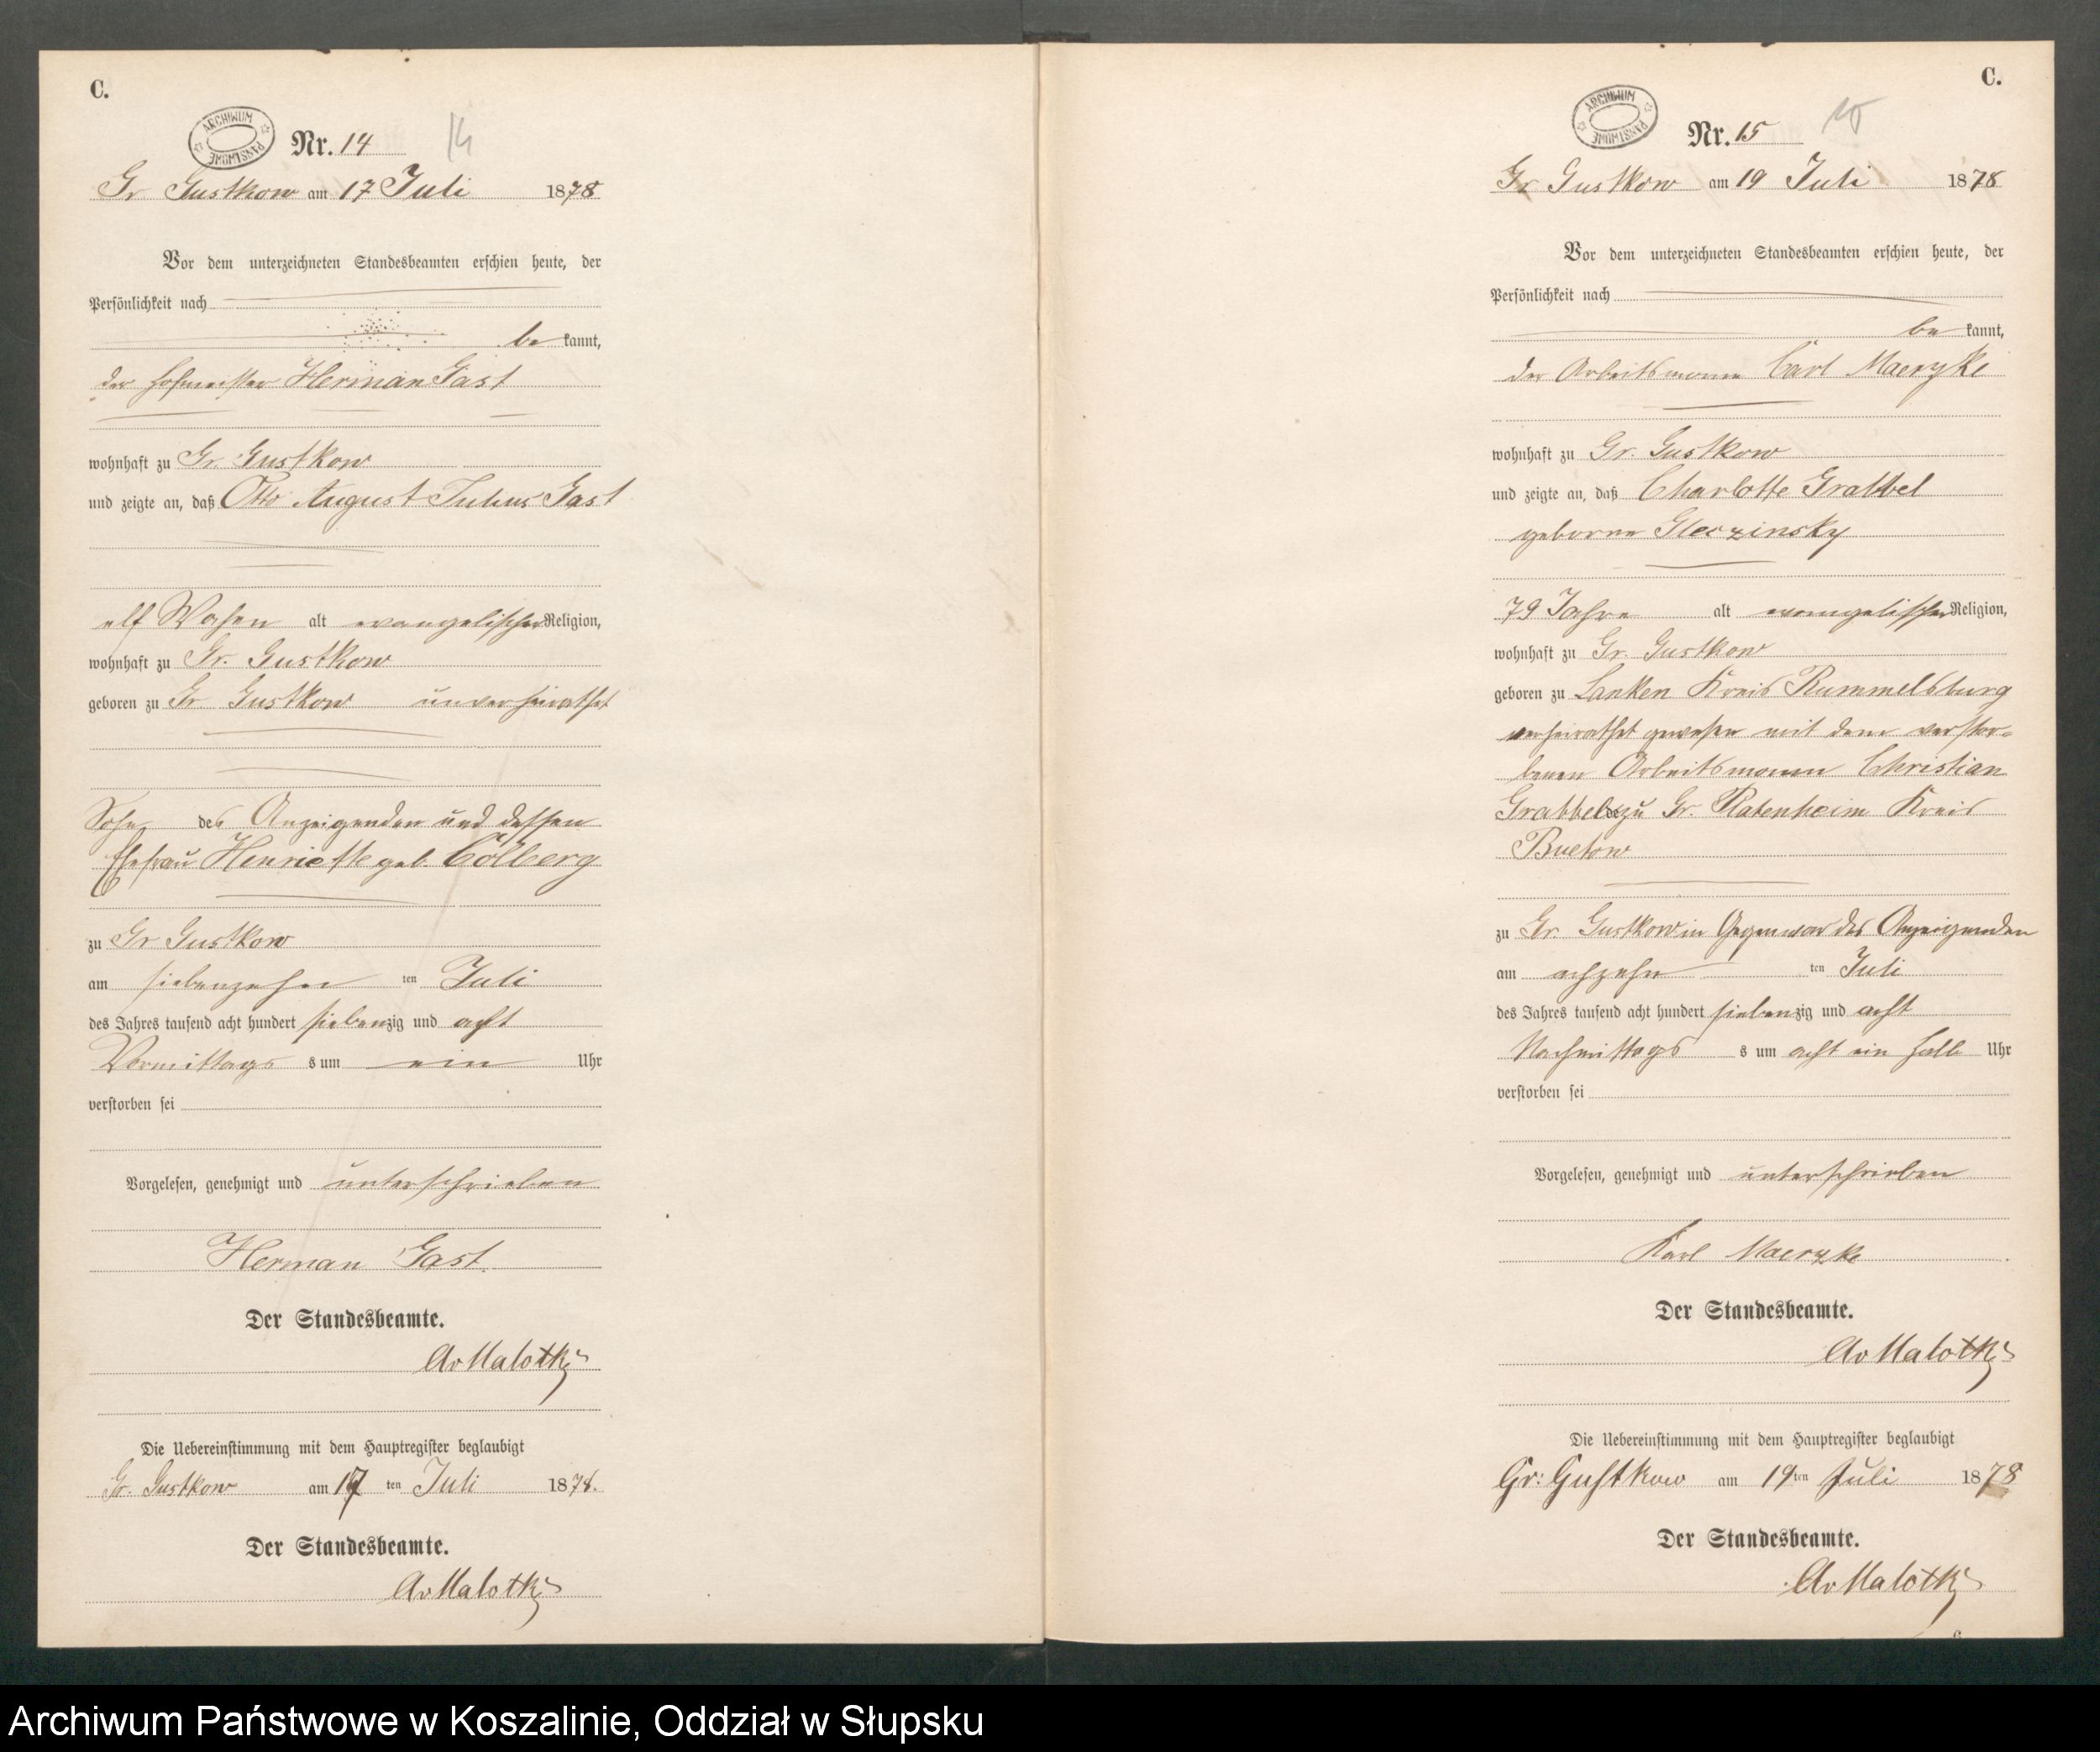 C.
ARCHIWUM PAŃSTWOWE
Nr. 14
14
Gr Gustkow am 17 Juli 1878
Vor dem unterzeichneten Standesbeamten erschien heute, der
Persönlichkeit nach
be kannt,
der Hofmeister Herman Gast
wohnhaft zu Gr. Gustkow
und zeigte an, daß Otto August Julius Gast
elf Wochen alt evangelischer Religion,
wohnhaft zu Gr. Gustkow
geboren zu Gr Gustkow unverheirathet
Sohn des Anzeigenden und dessen
Ehefrau Henriette geb. Cölberg
zu Gr Gustkow
am siebenzehn ten Juli
des Jahres tausend acht hundert siebenzig und acht
Vormittags s um ein Uhr
verstorben sei
Vorgelesen, genehmigt und unterschrieben
Herman Gast.
Der Standesbeamte.
AvMalotki
Die Uebereinstimmung mit dem Hauptregister beglaubigt
Gr. Gustkow am 17 ten Juli 1878.
Der Standesbeamte.
AvMalotki
C.
ARCHIWUM PAŃSTWOWE
Nr. 15
15
Gr Gustkow am 19 Juli 1878
Vor dem unterzeichneten Standesbeamten erschien heute, der
Persönlichkeit nach
be kannt,
der Arbeitsmann Carl Maeryke
wohnhaft zu Gr. Gustkow
und zeigte an, daß Charlotte Grabbel
geborne Gleczinsky
79 Jahre alt evangelischer Religion,
wohnhaft zu Gr. Gustkow
geboren zu Lanken Kreis Rummelsburg
verheirathet gewesen mit dem verstor-
benen Arbeitsmann Christian
Grabbel zu Gr. Platenheim Kreis
Buetow
zu Gr. Gustkow in Gegenwar des Anzeigenden
am achzehn ten Juli
des Jahres tausend acht hundert siebenzig und acht
Nachmittags s um acht ein halb Uhr
verstorben sei
Vorgelesen, genehmigt und unterschrieben
Karl Maeryke
Der Standesbeamte.
AvMalotki
Die Uebereinstimmung mit dem Hauptregister beglaubigt
Gr: Gustkow am 19 ten Juli 1878
Der Standesbeamte.
AvMalotki
Archiwum Państwowe w Koszalinie, Oddział w Słupsku